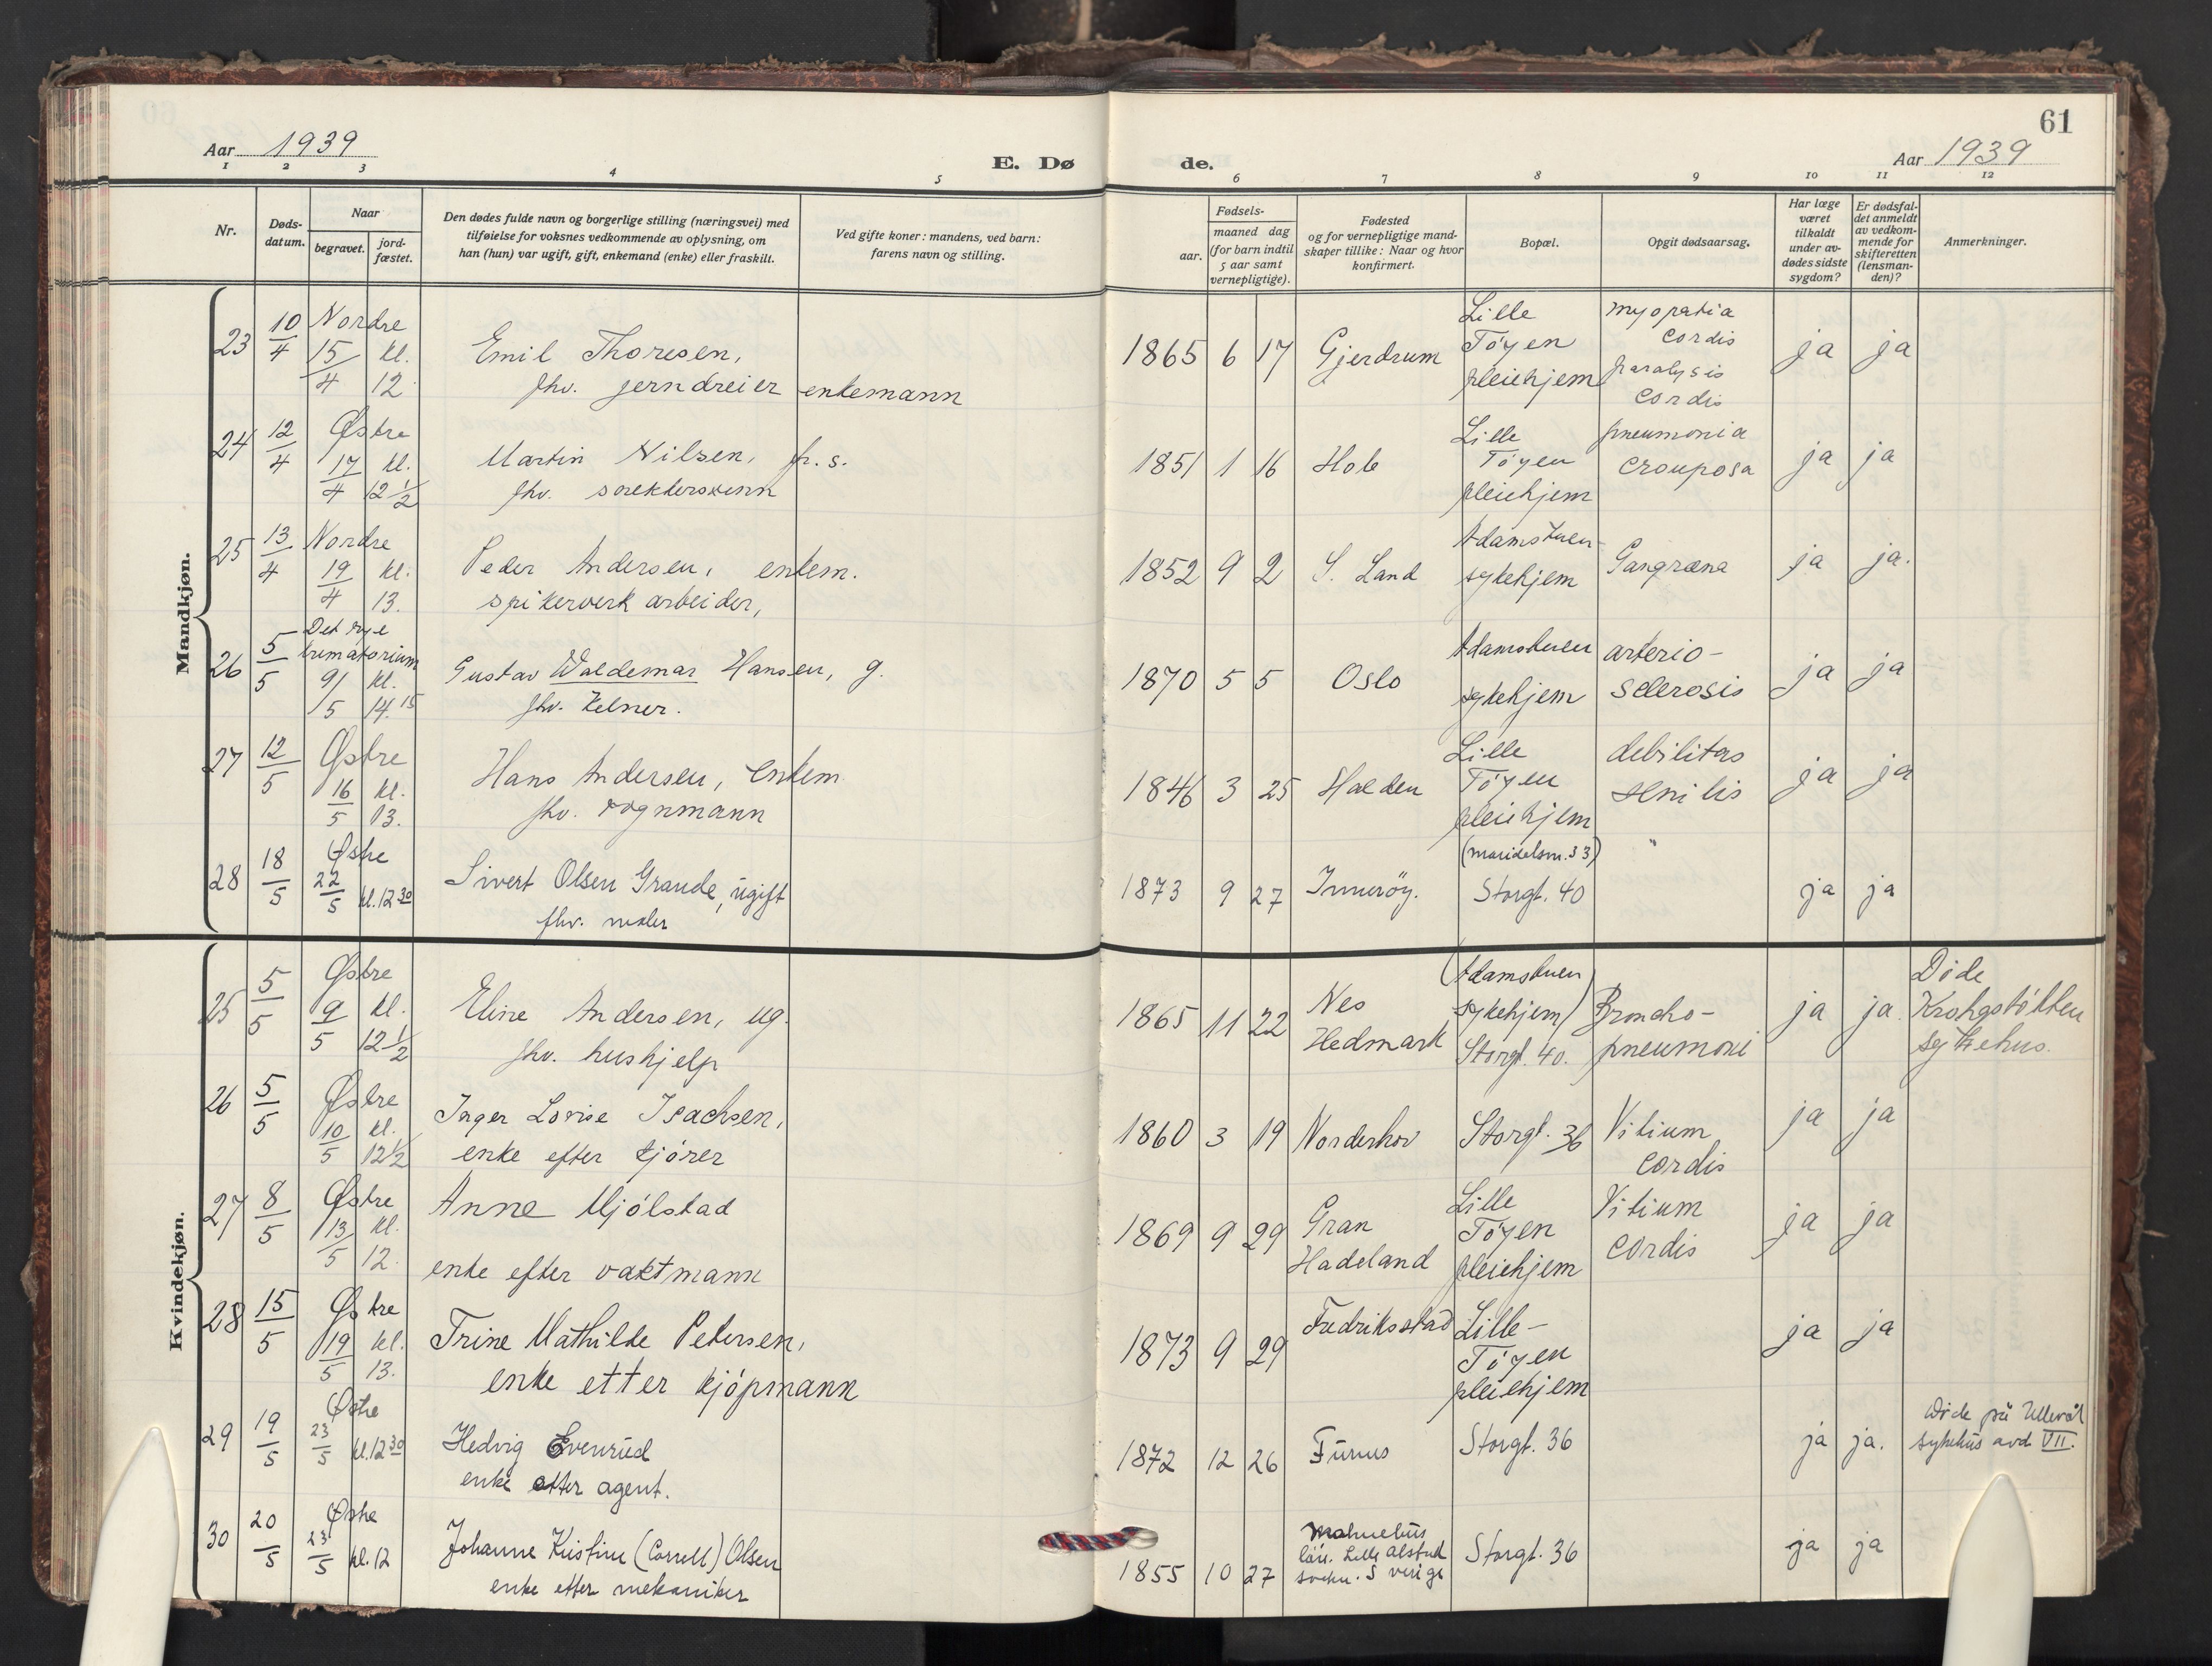 Aar 1939
E. Dø
1 2 3 4 5
Nr.
Døds-
datum.
Naar
begravet.
jord-
fæstet.
Den dødes fulde navn og borgerlige stilling (næringsvei) med
tilføielse for voksnes vedkommende av oplysning, om
han (hun) var ugift, gift, enkemand (enke) eller fraskilt.
Ved gifte koner: mandens, ved barn:
farens navn og stilling.
Mandkjøn.
23 10/4 Nordre
15/4 kl. 12
Emil Thoresen,
fhv. jerndreier enkemann
24 12/4 Østre
17/4 kl. 12 1/2
Martin Nilsen, fr. s.
fhv.
25 13/4 Nordre
19/4 kl. 13.
Peder Andersen, enkem.
spikerverk arbeider,
26 5/5 Det nye
krematorium
9/5 kl. 14.15
Gustav Waldemar Hansen, g.
fhv. kelner.
27 12/5 Østre
16/5 kl. 13.
Hans Andersen, enkem
fhv. vognmann
28 18/5 Østre
22/5 kl. 12 30
Sivert Olsen Grande, ugift
fhv. maler
Kvindekjøn.
25 5/5 Østre
9/5 kl. 12 1/2
Eline Andersen, ug.
fhv. hushjelp
26 5/5 Østre
10/5 kl. 12 1/2
Inger Lovise Isachsen,
enke efter kjører
27 8/5 Østre
13/5 kl. 12.
Anne Mjölstad
enke efter vaktmann
28 15/5 Østre
19/5 kl. 13.
Trine Mathilde Petersen,
enke etter kjöpmann
29 19/5 Østre
23/5 kl. 12 30
Hedvig Evenrud
enke etter agent.
30 20/5 Østre
23/5 kl. 12
Johanne Kristine (Correll) Olsen
enke etter mekaniker
61
de.
Aar 1939
6 7 8 9 10 11 12
aar.
Fødsels-
maaned dag
(for barn indtil
5 aar samt
vernepligtige).
Fødested
og for vernepligtige mand-
skaper tillike: Naar og hvor
konfirmert.
Bopæl.
Opgit dødsaarsag.
Har læge
været
tilkaldt
under av-
dødes sidste
sygdom?
Er dødsfal-
det anmeldt
av vedkom-
mende for
skifteretten
(lensman-
den)?
Anmerkninger.
1865 6 17 Gjerdrum
Lille
Töyen
pleiehjem
myopatia
cordis
paralysis
cordis
ja ja
1851 1 16 Hole
Lille
Töyen
pleiehjem
pneumonia
crouposa
ja ja
1852 9 2 S. Land
Adamstuen
sykehjem
Gangræna
ja ja.
1870 5 5 Oslo
Adamstuen
sykehjem
arterio-
sclerosis
ja ja
1846 3 25 Halden
Lille
Töyen
pleiehjem
debilitas
senilis
ja ja
1873 9 27 Inneröy.
(maridalsvn. 33)
Storgt. 40
"
ja ja
1865 11 22 Nes
Hedmark
(Adamstuen
sykehjem)
Storgt. 40.
Broncho-
pneumoni
ja ja
Döde
Krohgstötten
sykehus.
1860 3 19 Norderhov
Storgt. 36
Vitium
cordis
ja ja
1869 9 29 Gran
Hadeland
Lille
Töyen
pleiehjem
Vitium
cordis
ja ja
1873 9 29 Fredriksstad
Lille-
Töyen
pleiehjem
ja ja
1872 12 26 Furnes
Storgt. 36
ja ja.
Döde på Ullevål
sykehus avd VII.
1855 10 27 Malmehus
län. Lille
Sverige
Storgt. 36
ja ja